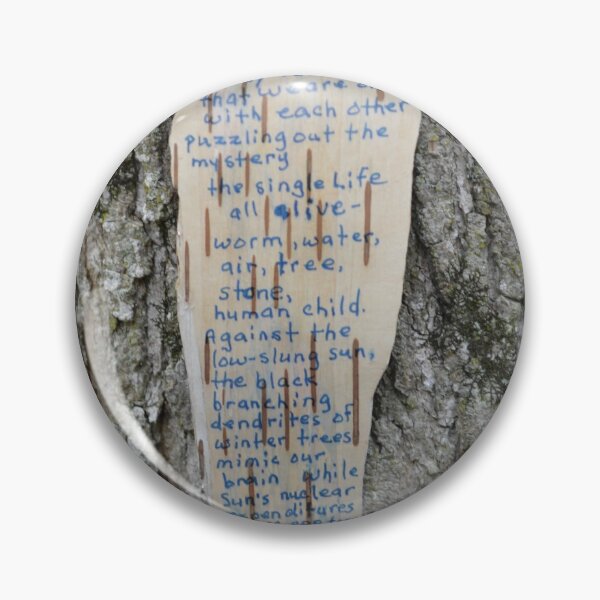 that we are
with each other
puzzling out the
mystery
the single Life
all alive-
worm, water,
air, tree,
stone,
human child.
Against the
low-slung sun,
the black
branching
dendrites of
winter trees
mimic our
brain while
Sun's nuclear